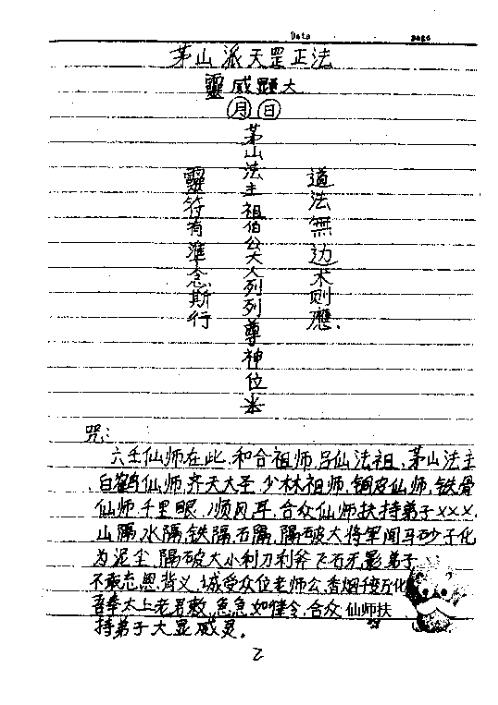 Date page
茅山派天罡正法
靈威顕大
月 日
道法無边术则應.
茅山法主祖伯公大人列列尊神位
靈符有準念斯行
咒:
六壬仙师在此.和合祖师,吕仙法祖,茅山法主
白鹤仙师,齐天大圣,少林祖师,铜皮仙师,铁骨
仙师,千里眼,顺风耳,合众仙师扶持弟子×××,
山隔,水隔,铁隔,石隔,隔破大将军闻马砂子化
为泥尘,隔破大小利刀利斧飞石牙,影弟子
不敢忘恩.背义,诚受众位老师公,香烟千变万化
吾奉太上老君敕,急急如律令,合众仙师扶
持弟子大显威灵.
2